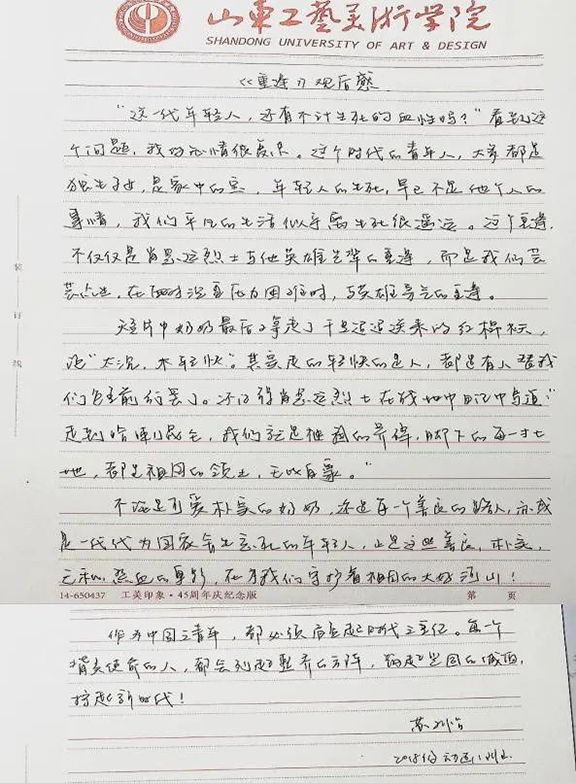 山东工艺美術学院
SHANDONG UNIVERSITY OF ART & DESIGN
《重逢》观后感
"这一代年轻人，还有不计生死的血性吗？"看到这
个问题，我的心情很复杂。这个时代的青年人，大多都是
独生子女，是家中的宝，年轻人的生死，早已不是他个人的
事情，我们平凡的生活似乎离生死很遥远。这个重逢，
不仅仅是肖思远烈士与他英雄先辈的重逢，而是我们芸
芸众生，在面对沉重压力困难时，与英雄的重逢。
短片中奶奶最后拿走了千里迢迢送来的红棉袄，
说"太沉，不轻快"。其实走的轻快的是人，都是有人替我
们负重前行罢了。还记得肖思远烈士在战地日记中写道："
走到哪，我们就是祖国的界碑，脚下的每一寸土
地，都是祖国的领土，无比自豪。"
不论是可爱朴实的奶奶，还是每一个善良的路人，亦或
是一代代为国家舍生忘死的年轻人，正是这些善良，朴实，
无私，热血的身影，在为我们守护着祖国的大好河山！
装
订
线
14-650437 工美印象·45周年庆纪念版 第 页
作为中国之青年，都必须肩负起时代之重任。每一个
背负使命的人，都会列起整齐的方阵，铸起坚固的城墙，
撑起新时代！
苏
2018级动画